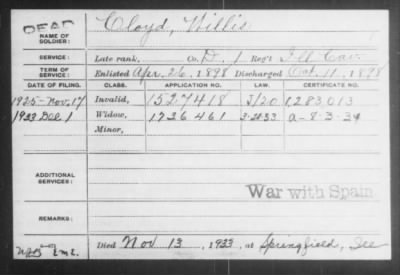 DEAD
NAME OF SOLDIER: Cloyd, Willis
SERVICE: Late rank, Co. D, 1 Reg't Ill Cav.
TERM OF SERVICE: Enlisted Apr. 26, 1898 Discharged Oct. 11, 1898
DATE OF FILING. CLASS. APPLICATION NO. LAW. CERTIFICATE NO.
1925-Nov. 17 Invalid, 1527418 J/20 1,283,013
1933 Dec 1 Widow, 1736461 3-20-33 a-8-3-34
Minor,
ADDITIONAL SERVICES:
War with Spain
REMARKS:
Died Nov 13, 1933, at Springfield, Ill